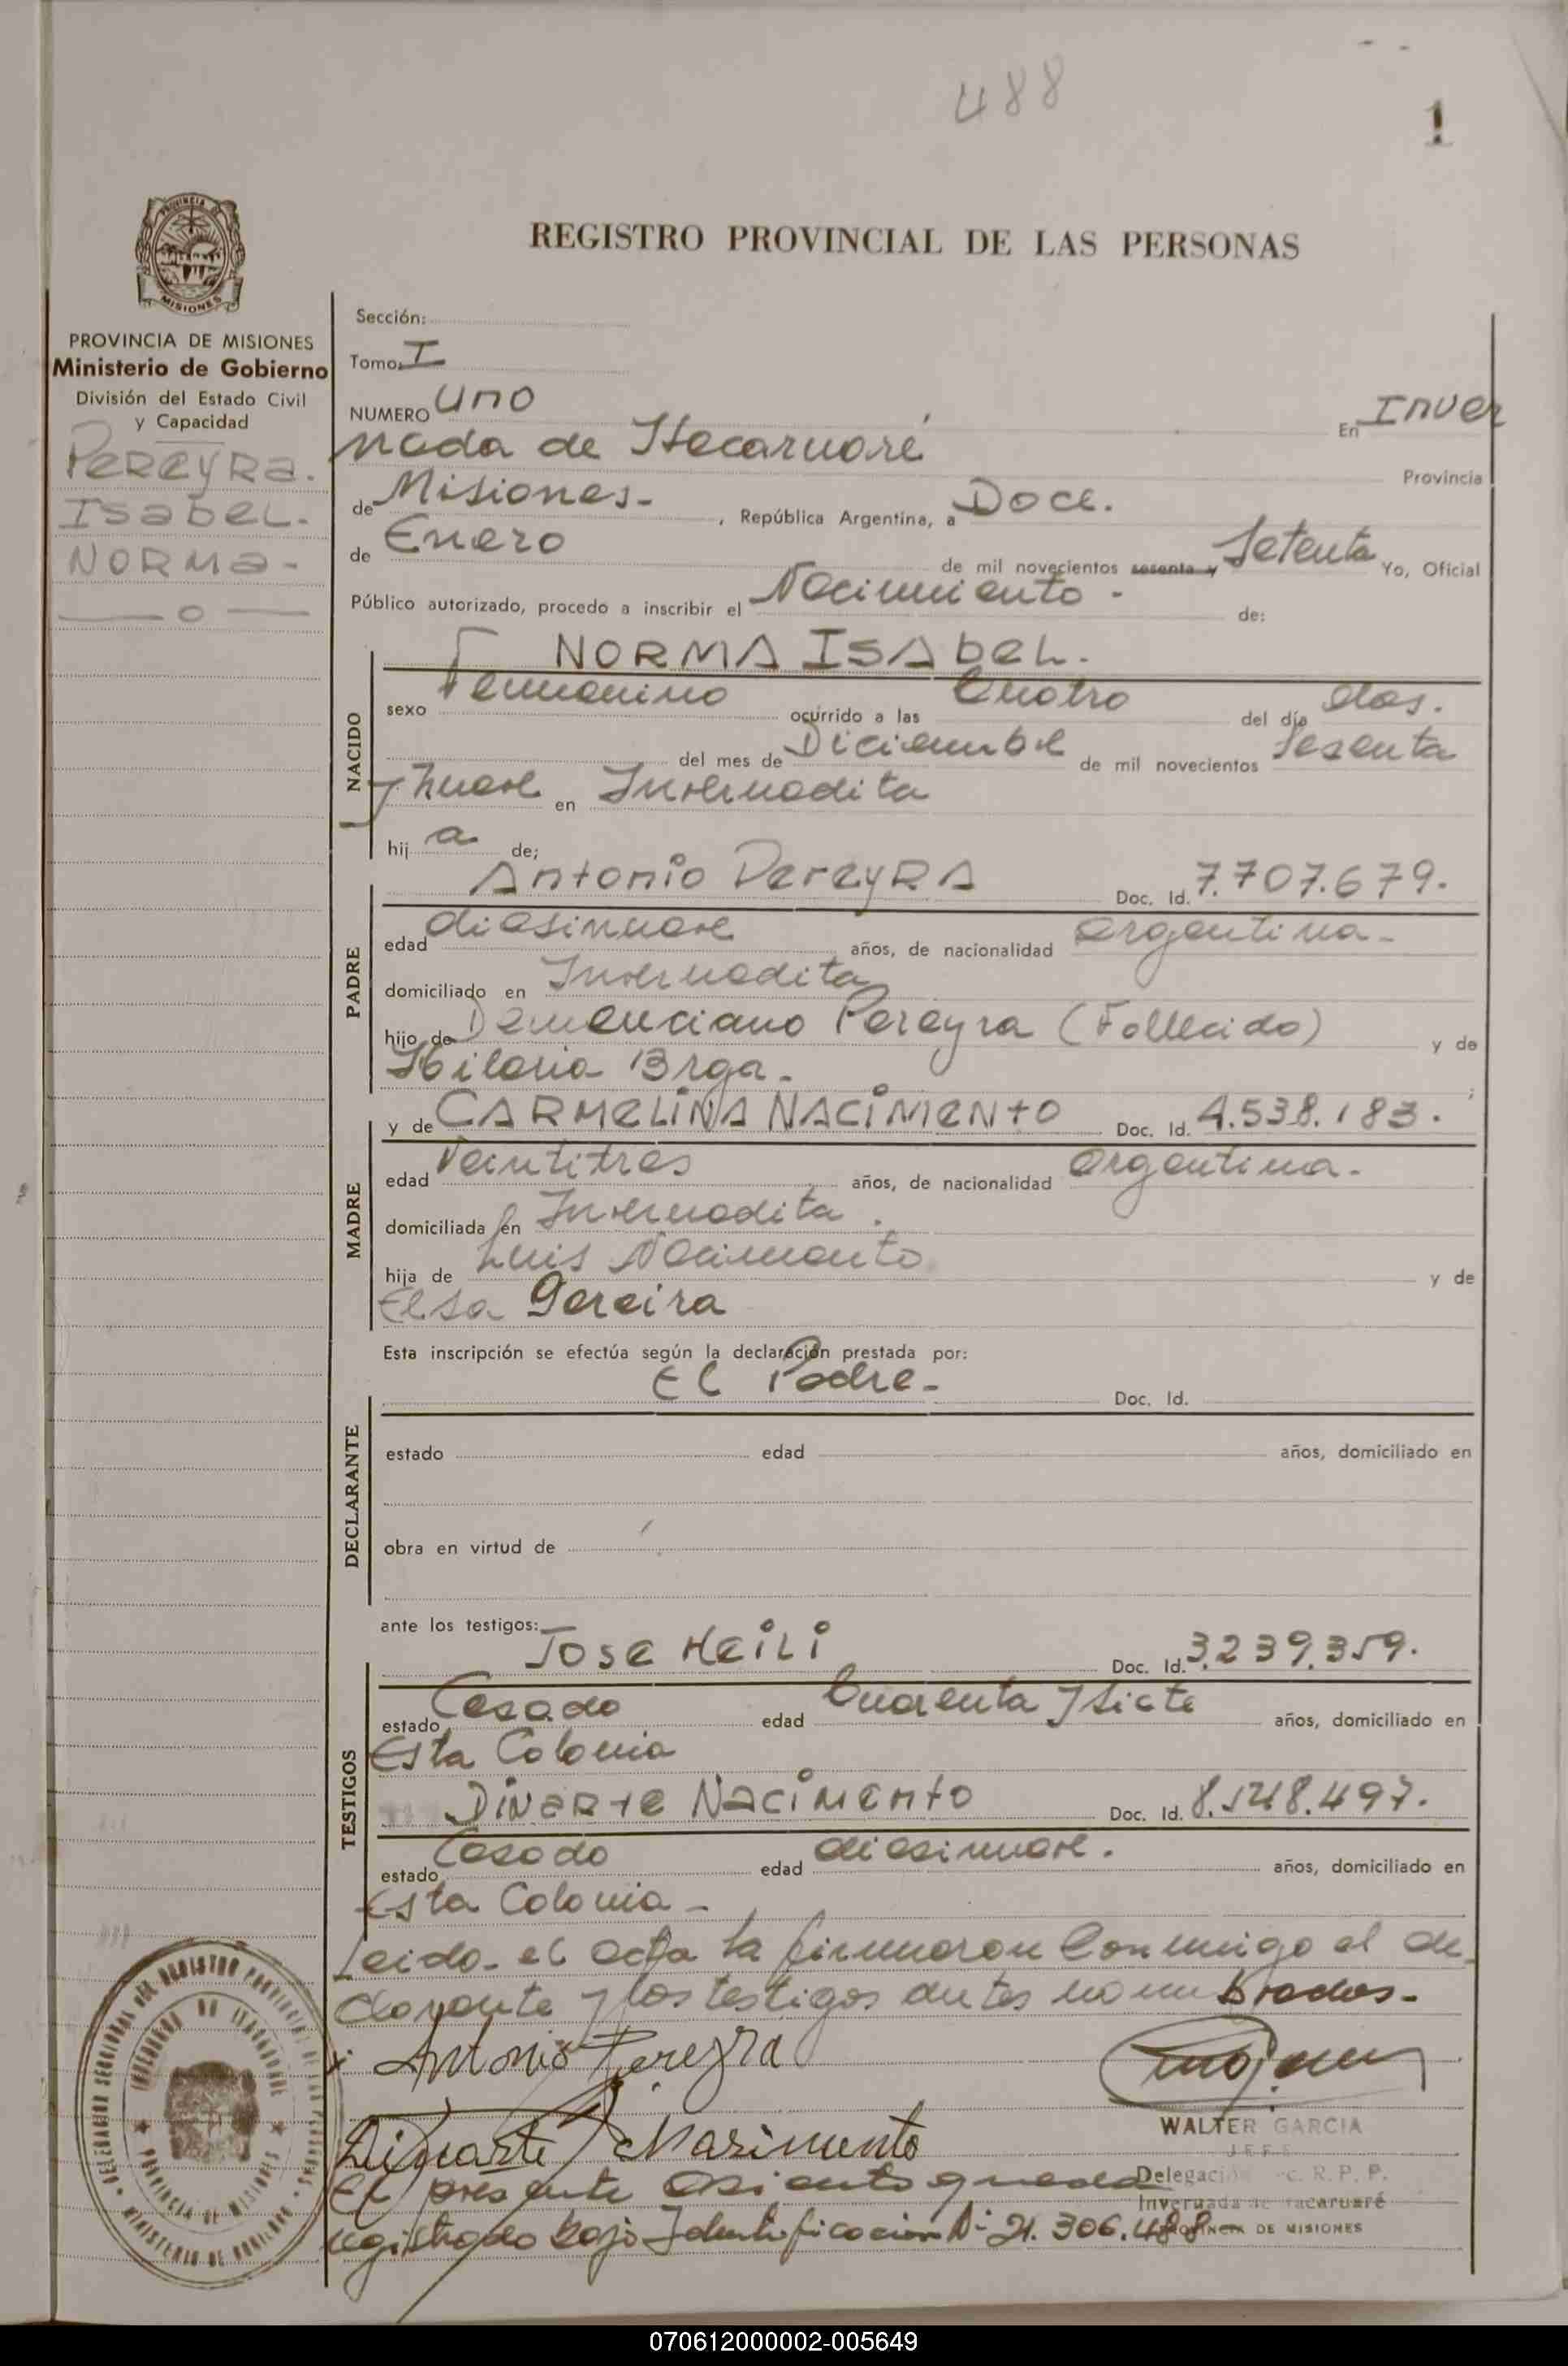 488
1
REGISTRO PROVINCIAL DE LAS PERSONAS
PROVINCIA DE MISIONES
Ministerio de Gobierno
División del Estado Civil
y Capacidad
PEREYRA.
ISABEL.
NORMA-
—o—
Sección:
Tomo: I
NUMERO uno En Inver
nada de Itacaruaré Provincia
de Misiones- , República Argentina, a Doce.
de Enero de mil novecientos sesenta y Setenta Yo, Oficial
Público autorizado, procedo a inscribir el Nacimiento - de:
NACIDO
NORMA ISABEL.
sexo Femenino ocurrido a las Cuatro del día dos.
del mes de Diciembre de mil novecientos Sesenta
y nueve en Invernadita
hij a de;
PADRE
Antonio Pereyra Doc. Id. 7.707.679.
edad diesinueve años, de nacionalidad argentina-
domiciliado en Invernadita
hijo de Demenciano Pereyra (Fallecido) y de
Hilaria Brga.
MADRE
y de CARMELINA NACIMENTO Doc. Id. 4.538.183.
edad Veintitres años, de nacionalidad argentina-
domiciliada en Invernadita.
hija de Luis Nacimento y de
Elsa Pereira
Esta inscripción se efectúa según la declaración prestada por:
DECLARANTE
El Padre- Doc. Id.
estado edad años, domiciliado en
obra en virtud de
ante los testigos:
TESTIGOS
JOSE MEILI Doc. Id. 3.239.359.
estado Casado edad Cuarenta y siete años, domiciliado en
Esta Colonia
DINARTE NACIMENTO Doc. Id. 8.548.497.
estado Casado edad diesinueve. años, domiciliado en
Esta Colonia-
Leida el acta la firmaron Conmigo el de-
clarante y los testigos antes nombrados-
Antonio Pereyra
WALTER GARCIA
JEFE
Dinarte Nasimento
Delegación R. P. P.
El presente asiento queda
Invernada de Itacaruaré
registrado bajo Identificacion N° 21.306.488
PROVINCIA DE MISIONES
070612000002-005649